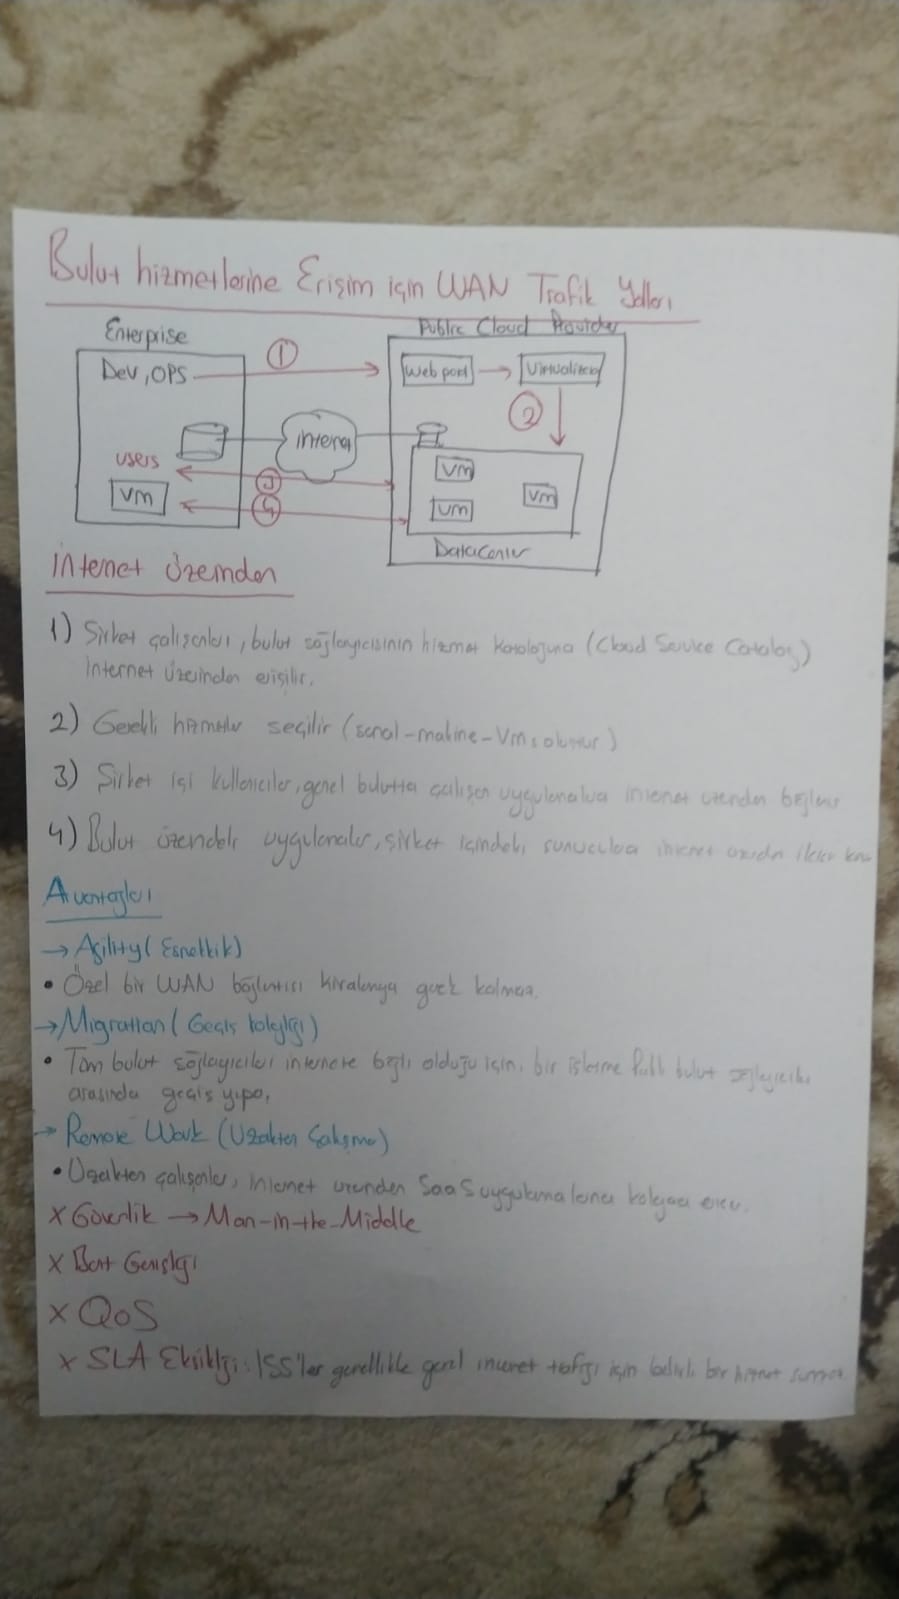 Bulut hizmetlerine Erişim için WAN Trafik Yolları
Enterprise
Public Cloud Provider
Dev, OPS
1
Web port
Virtualizatio
2
internet
users
3
VM
4
VM
VM
VM
DataCenter
internet üzerinden
1) Şirket çalışanları, bulut sağlayıcısının hizmet kataloğuna (Cloud Service Catalog)
İnternet üzerinden erişilir.
2) Gerekli hizmetler seçilir (sanal-makine-VMs oluşur)
3) Şirket içi kullanıcılar, genel bulutta çalışan uygulamalara internet üzerinden bağlanır
4) Bulut üzerindeki uygulamalar, şirket içindeki sunuculara internet üzerinden
Avantajları
→ Agility (Esneklik)
• Özel bir WAN bağlantısı kiralamaya gerek kalmaz.
→ Migration (Geçiş Kolaylığı)
• Tüm bulut sağlayıcıları internete bağlı olduğu için, bir işletme bulut sağlayıcıları
arasında geçiş yapar.
→ Remote Work (Uzaktan Çalışma)
• Uzaktan çalışanlar, internet üzerinden SaaS uygulamalarına kolayca erişir.
X Güvenlik → Man-in-the-Middle
X Bant Genişliği
X QoS
X SLA Eksikliği: ISS'ler genellikle genel internet trafiği için belirli bir hizmet sunmaz